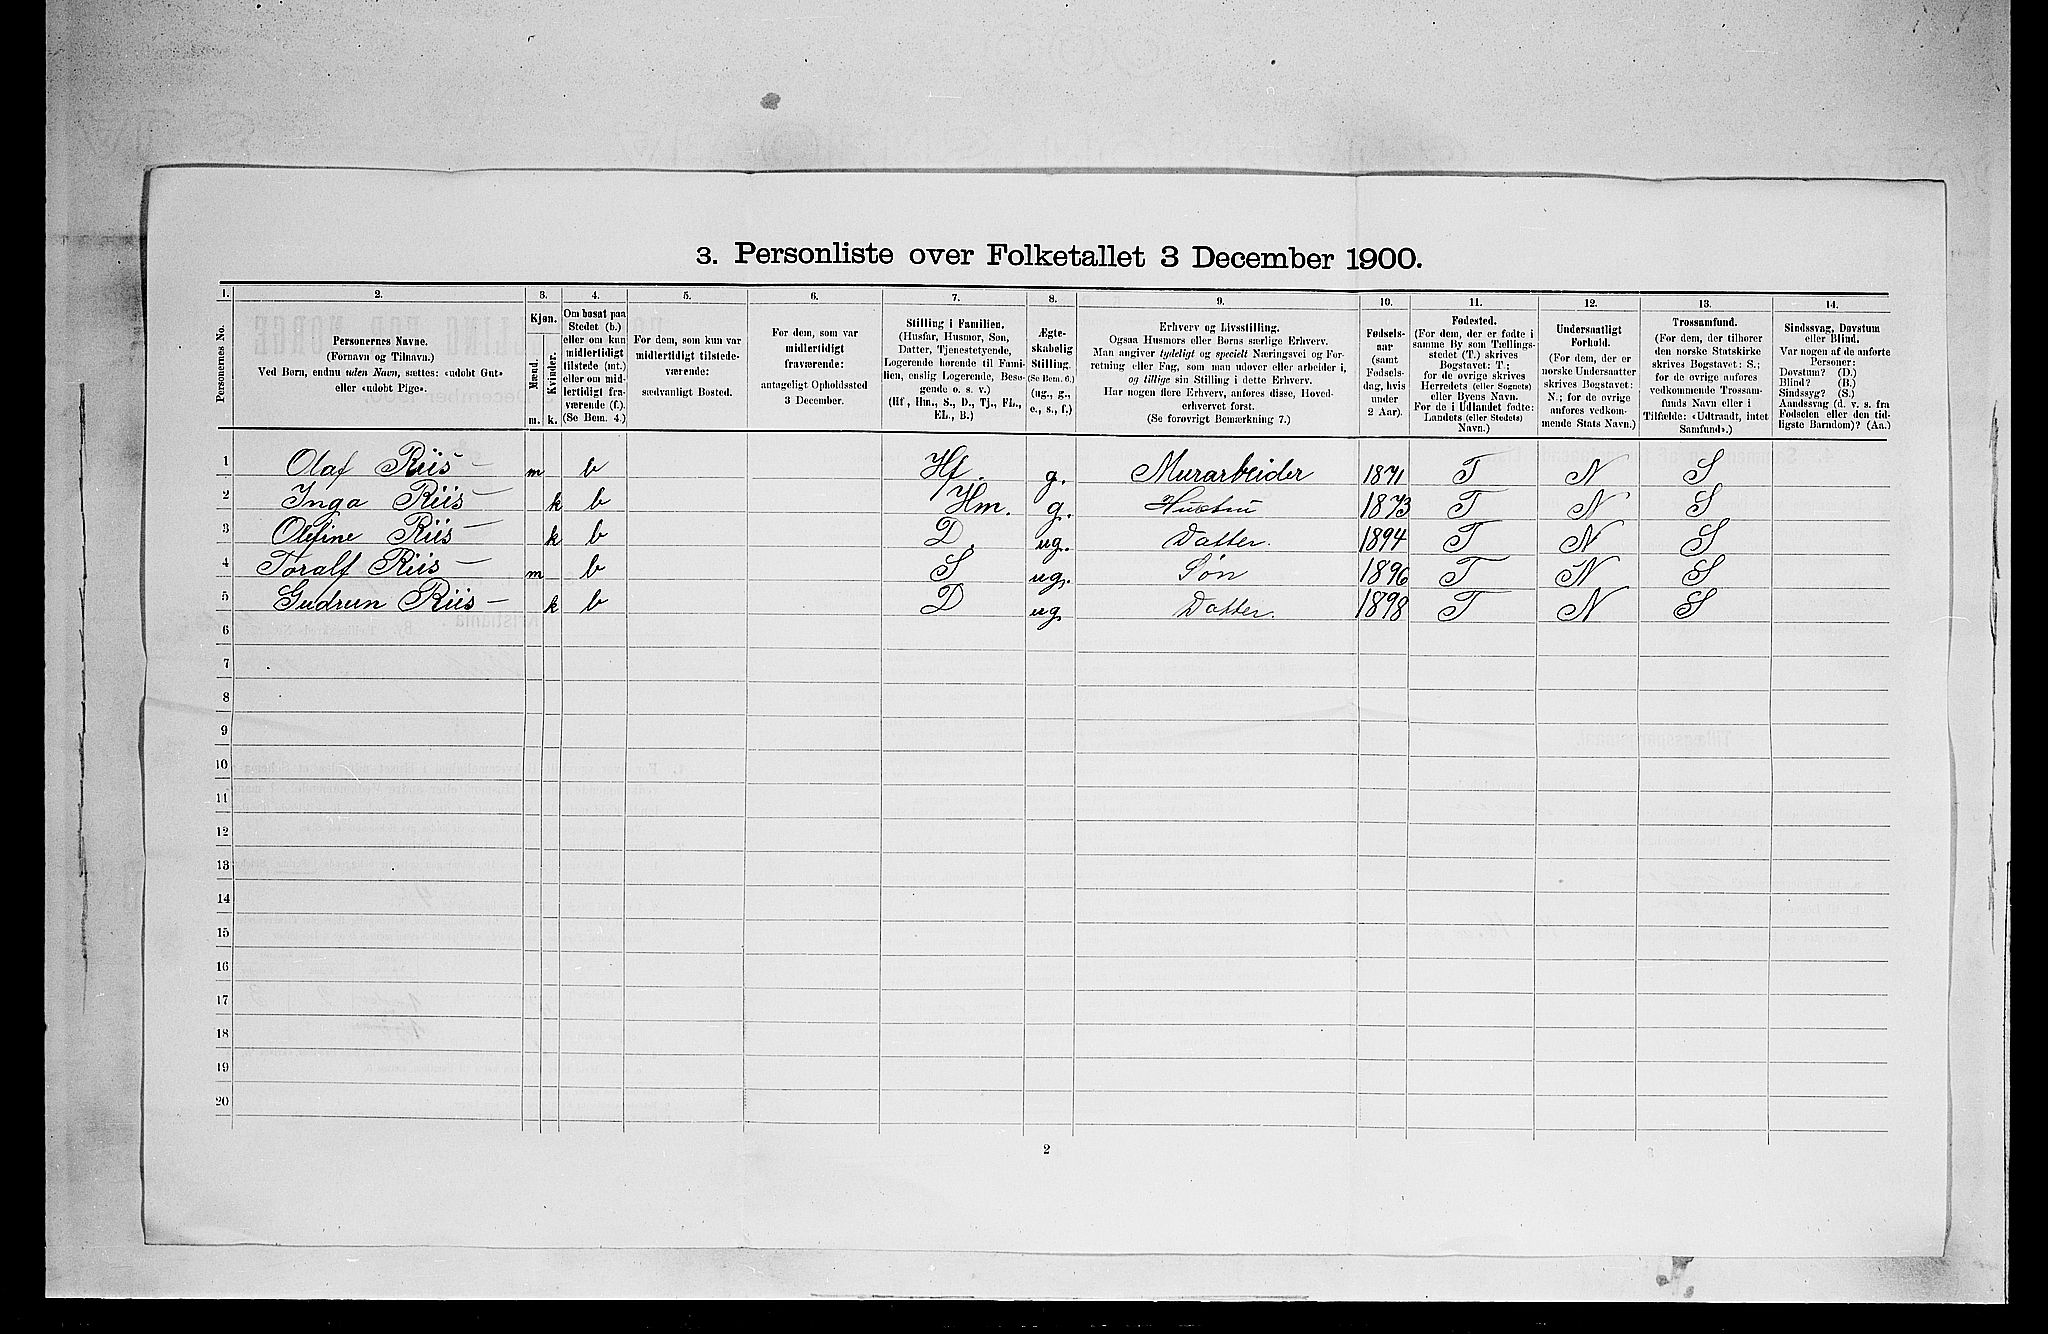 3. Personliste over Folketallet 3 December 1900.
1. 2. 3. 4. 5. 6. 7. 8. 9. 10. 11. 12. 13. 14.
Personernes No.
Personernes Navne.
(Fornavn og Tilnavn.)
Ved Børn, endnu uden Navn, sættes: «udøbt Gut»
eller «udøbt Pige».
Kjøn.
Mænd.
Kvinder.
m. k.
Om bosat paa
Stedet (b.)
eller om kun
midlertidigt
tilstede (mt.)
eller om mid-
lertidigt fra-
værende (f.).
(Se Bem. 4.)
For dem, som kun var
midlertidigt tilstede-
værende:
sædvanligt Bosted.
For dem, som var
midlertidigt
fraværende:
antageligt Opholdssted
3 December.
Stilling i Familien.
(Husfar, Husmor, Søn,
Datter, Tjenestetyende,
Logerende hørende til Fami-
lien, enslig Logerende, Besø-
gende o. s. v.)
(Hf., Hm., S., D., Tj., FL.,
EL., B.)
Ægte-
skabelig
Stilling.
(Se Bem. 6.)
(ug., g.,
e., s., f.)
Erhverv og Livsstilling.
Ogsaa Husmors eller Børns særlige Erhverv.
Man angiver tydeligt og specielt Næringsvei og For-
retning eller Fag, som man udøver eller arbeider i,
og tillige sin Stilling i dette Erhverv.
Har nogen flere Erhverv, anføres disse, Hoved-
erhvervet først.
(Se forøvrigt Bemærkning 7.)
Fødsels-
aar
(samt
Fødsels-
dag, hvis
under
2 Aar).
Fødested.
(For dem, der er fødte i
samme By som Tællings-
stedet (T.) skrives
Bogstavet: T;
for de øvrige skrives
Herredets (eller Sognets)
eller Byens Navn.
For de i Udlandet fødte:
Landets (eller Stedets)
Navn.)
Undersaatligt
Forhold.
(For dem, der er
norske Undersaatter
skrives Bogstavet:
N.; for de øvrige
anføres vedkom-
mende Stats Navn.)
Trossamfund.
(For dem, der tilhører
den norske Statskirke
skrives Bogstavet: S.;
for de øvrige anføres
vedkommende Trossam-
funds Navn eller i
Tilfælde: «Udtraadt, intet
Samfund».)
Sindssvag, Døvstum
eller Blind.
Var nogen af de anførte
Personer:
Døvstum? (D.)
Blind? (B.)
Sindssyg? (S.)
Aandssvag (d. v. s. fra
Fødselen eller den tid-
ligste Barndom)? (Aa.)
1 Olaf Riis – m b Hf. g. Murarbeider 1871 T N S
2 Inga Riis – k b Hm. g. Hustru 1873 T N S
3 Olefine Riis – k b D. ug. Datter. 1894 T N S
4 Toralf Riis – m b S ug. Søn 1896 T N S
5 Gudrun Riis – k b D ug Datter. 1898 T N S
6
7
8
9
10
11
12
13
14
15
16
17
18
19
20
2